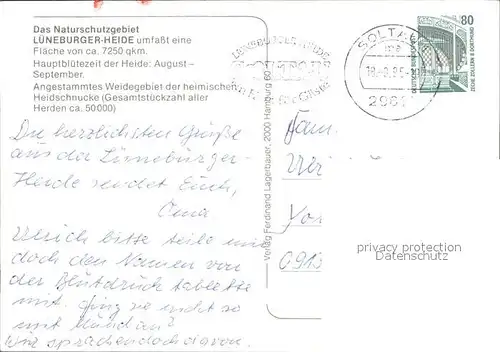 Das Naturschutzgebiet
LÜNEBURGER-HEIDE umfaßt eine
Fläche von ca. 7250 qkm.
Hauptblütezeit der Heide: August –
September.
Angestammtes Weidegebiet der heimischen
Heidschnucke (Gesamtstückzahl aller
Herden ca. 50000)
Die herzlichsten Grüße
aus der Lüneburger-
Heide sendet Euch,
Oma
Ulrich bitte teile mir
doch den Namen von
der Blutdruck tablette
mit. ging sie nicht so
mit Mundan?
Wir sprachen doch davon.
Verlag Ferdinand Lagerbauer, 2000 Hamburg 60
LÜNEBURGER HEIDE
SOLTAU
80
DEUTSCHE BUNDESPOST
ZECHE ZOLLERN II DORTMUND
Fam.
privacy protection
Datenschutz